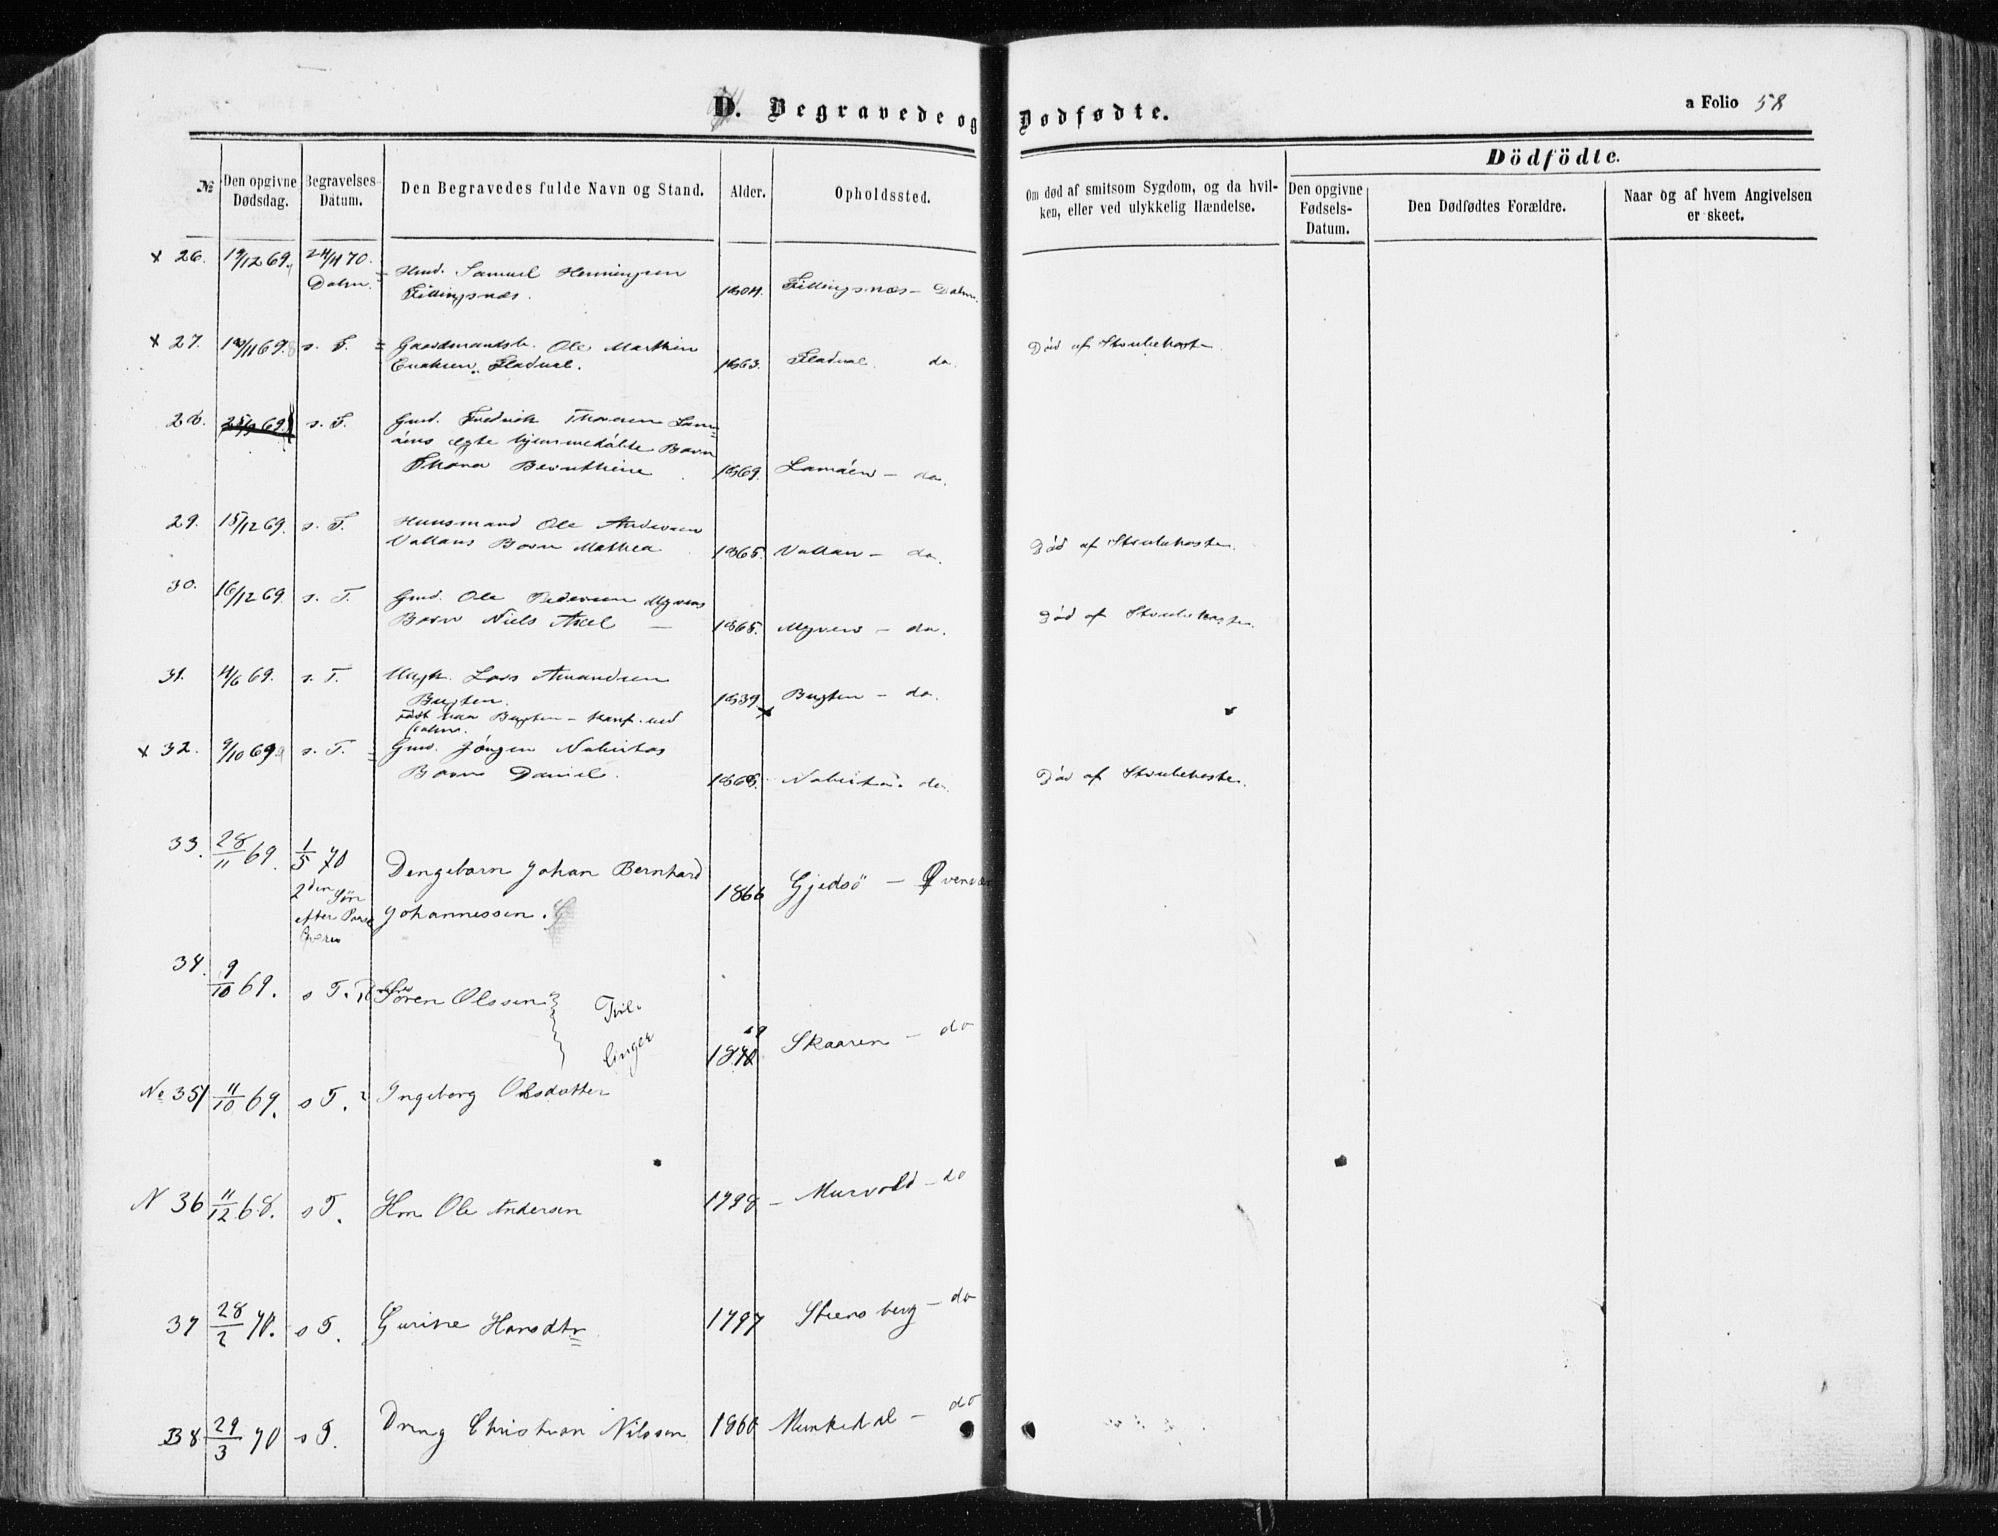 D. Begravede og Dødfødte.
a Folio 58
Dödfödte.
№
Den opgivne Dødsdag.
Begravelses-Datum.
Den Begravedes fulde Navn og Stand.
Alder.
Opholdssted.
Om død af smitsom Sygdom, og da hvil-
ken, eller ved ulykkelig Hændelse.
Den opgivne Fødsels-Datum.
Den Dødfødtes Forældre.
Naar og af hvem Angivelsen
er skeet.
x 26. 19/12 69. 24/4 70. Samuel Henningsen
Dolm. Fillingsnæs. 1804. Fillingsnæs - Dolm.
x 27. 69. s. T. = Gaardmands. Ole Marthin
Fladval. 1863. Fladval. do. Död af Strubehoste.
28. 25/9 69. s. T. Gmd. Fredrik Thoresen Lam-
öens ægte hjemmedöbte Barn
Bernthine 1869. Lamöen - do.
29. 15/12 69. s. T. Huusmand Ole Andersen
Vallans Barn Mathea 1865. Vallan - do. Död af Strubehoste.
30. 16/12 69. s. T. Gmd. Ole Pedersen Myrens
Barn Niels Axel 1865. Myren - do. Död af Strubehoste.
31. 4/6 69. s. T. Ungk. Lars Amandsen
Bugten. 1839. Bugten - do.
x 32. 9/10 69 s. T. = Gmd. Jörgen
Barn Daniel. 1868. do. Död af Strubehoste.
33. 28/11 69. 1/5 70 Drengebarn Johan Bernhard
2den Søn
efter Paaske Johannessen. 1866 Gjedsö - Qvenvær
34. 9/10 69. s T. Søren Olssen
Tvil-
linger
1870 69 Skaaren - do
No 35 11/10 69. s T. Ingeborg Olsdatter
N 36 11/12 68. s T. Hm Ole Andersen 1798 - Murvold - do
37 28/2 70. s T. Gurine Hansdtr 1797 Steensberg - do
38 29/3 70 s T. Dreng Christian Nilssen 1860 Munkedal - do